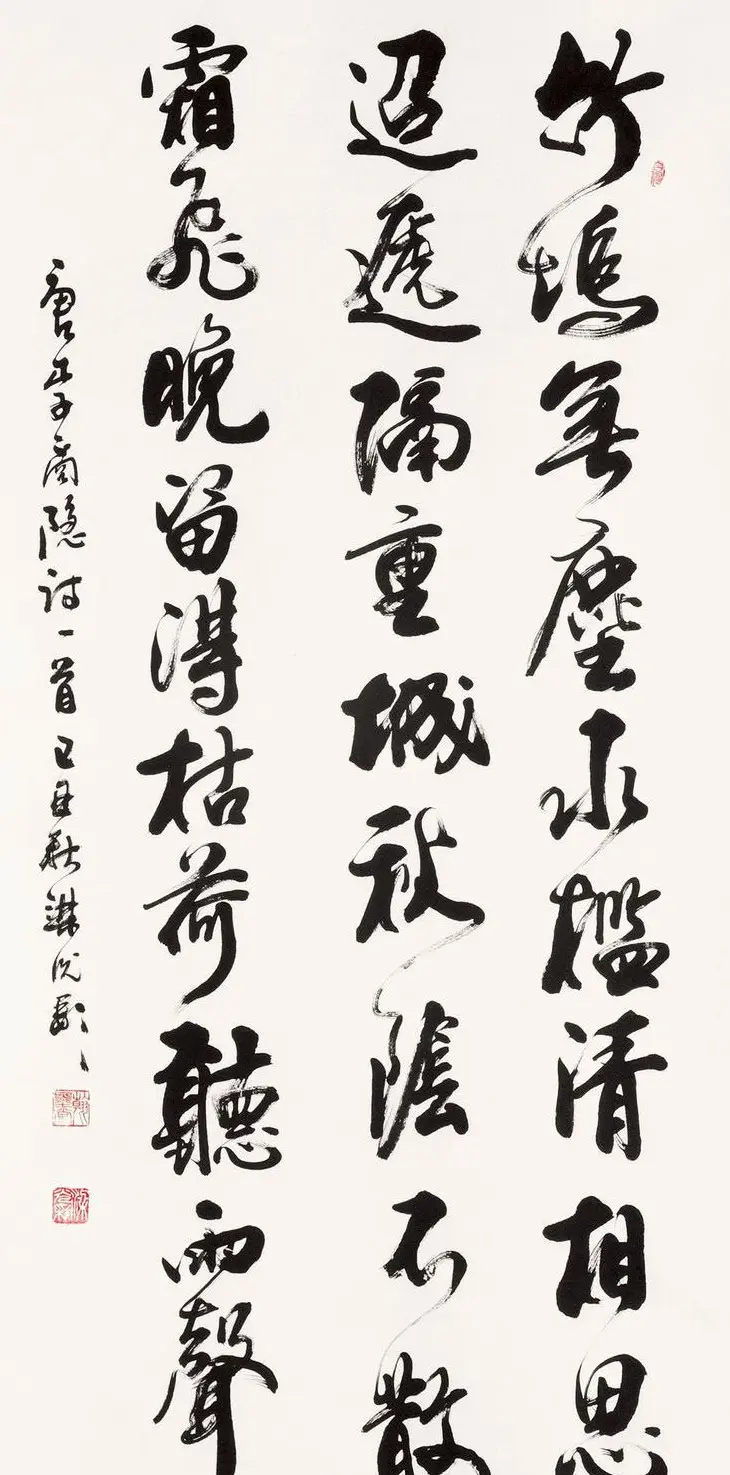 竹塢無塵水檻清相思
迢遞隔重城秋陰不散
霜飛晚留得枯荷聽雨聲
唐李商隐诗一首己丑秋